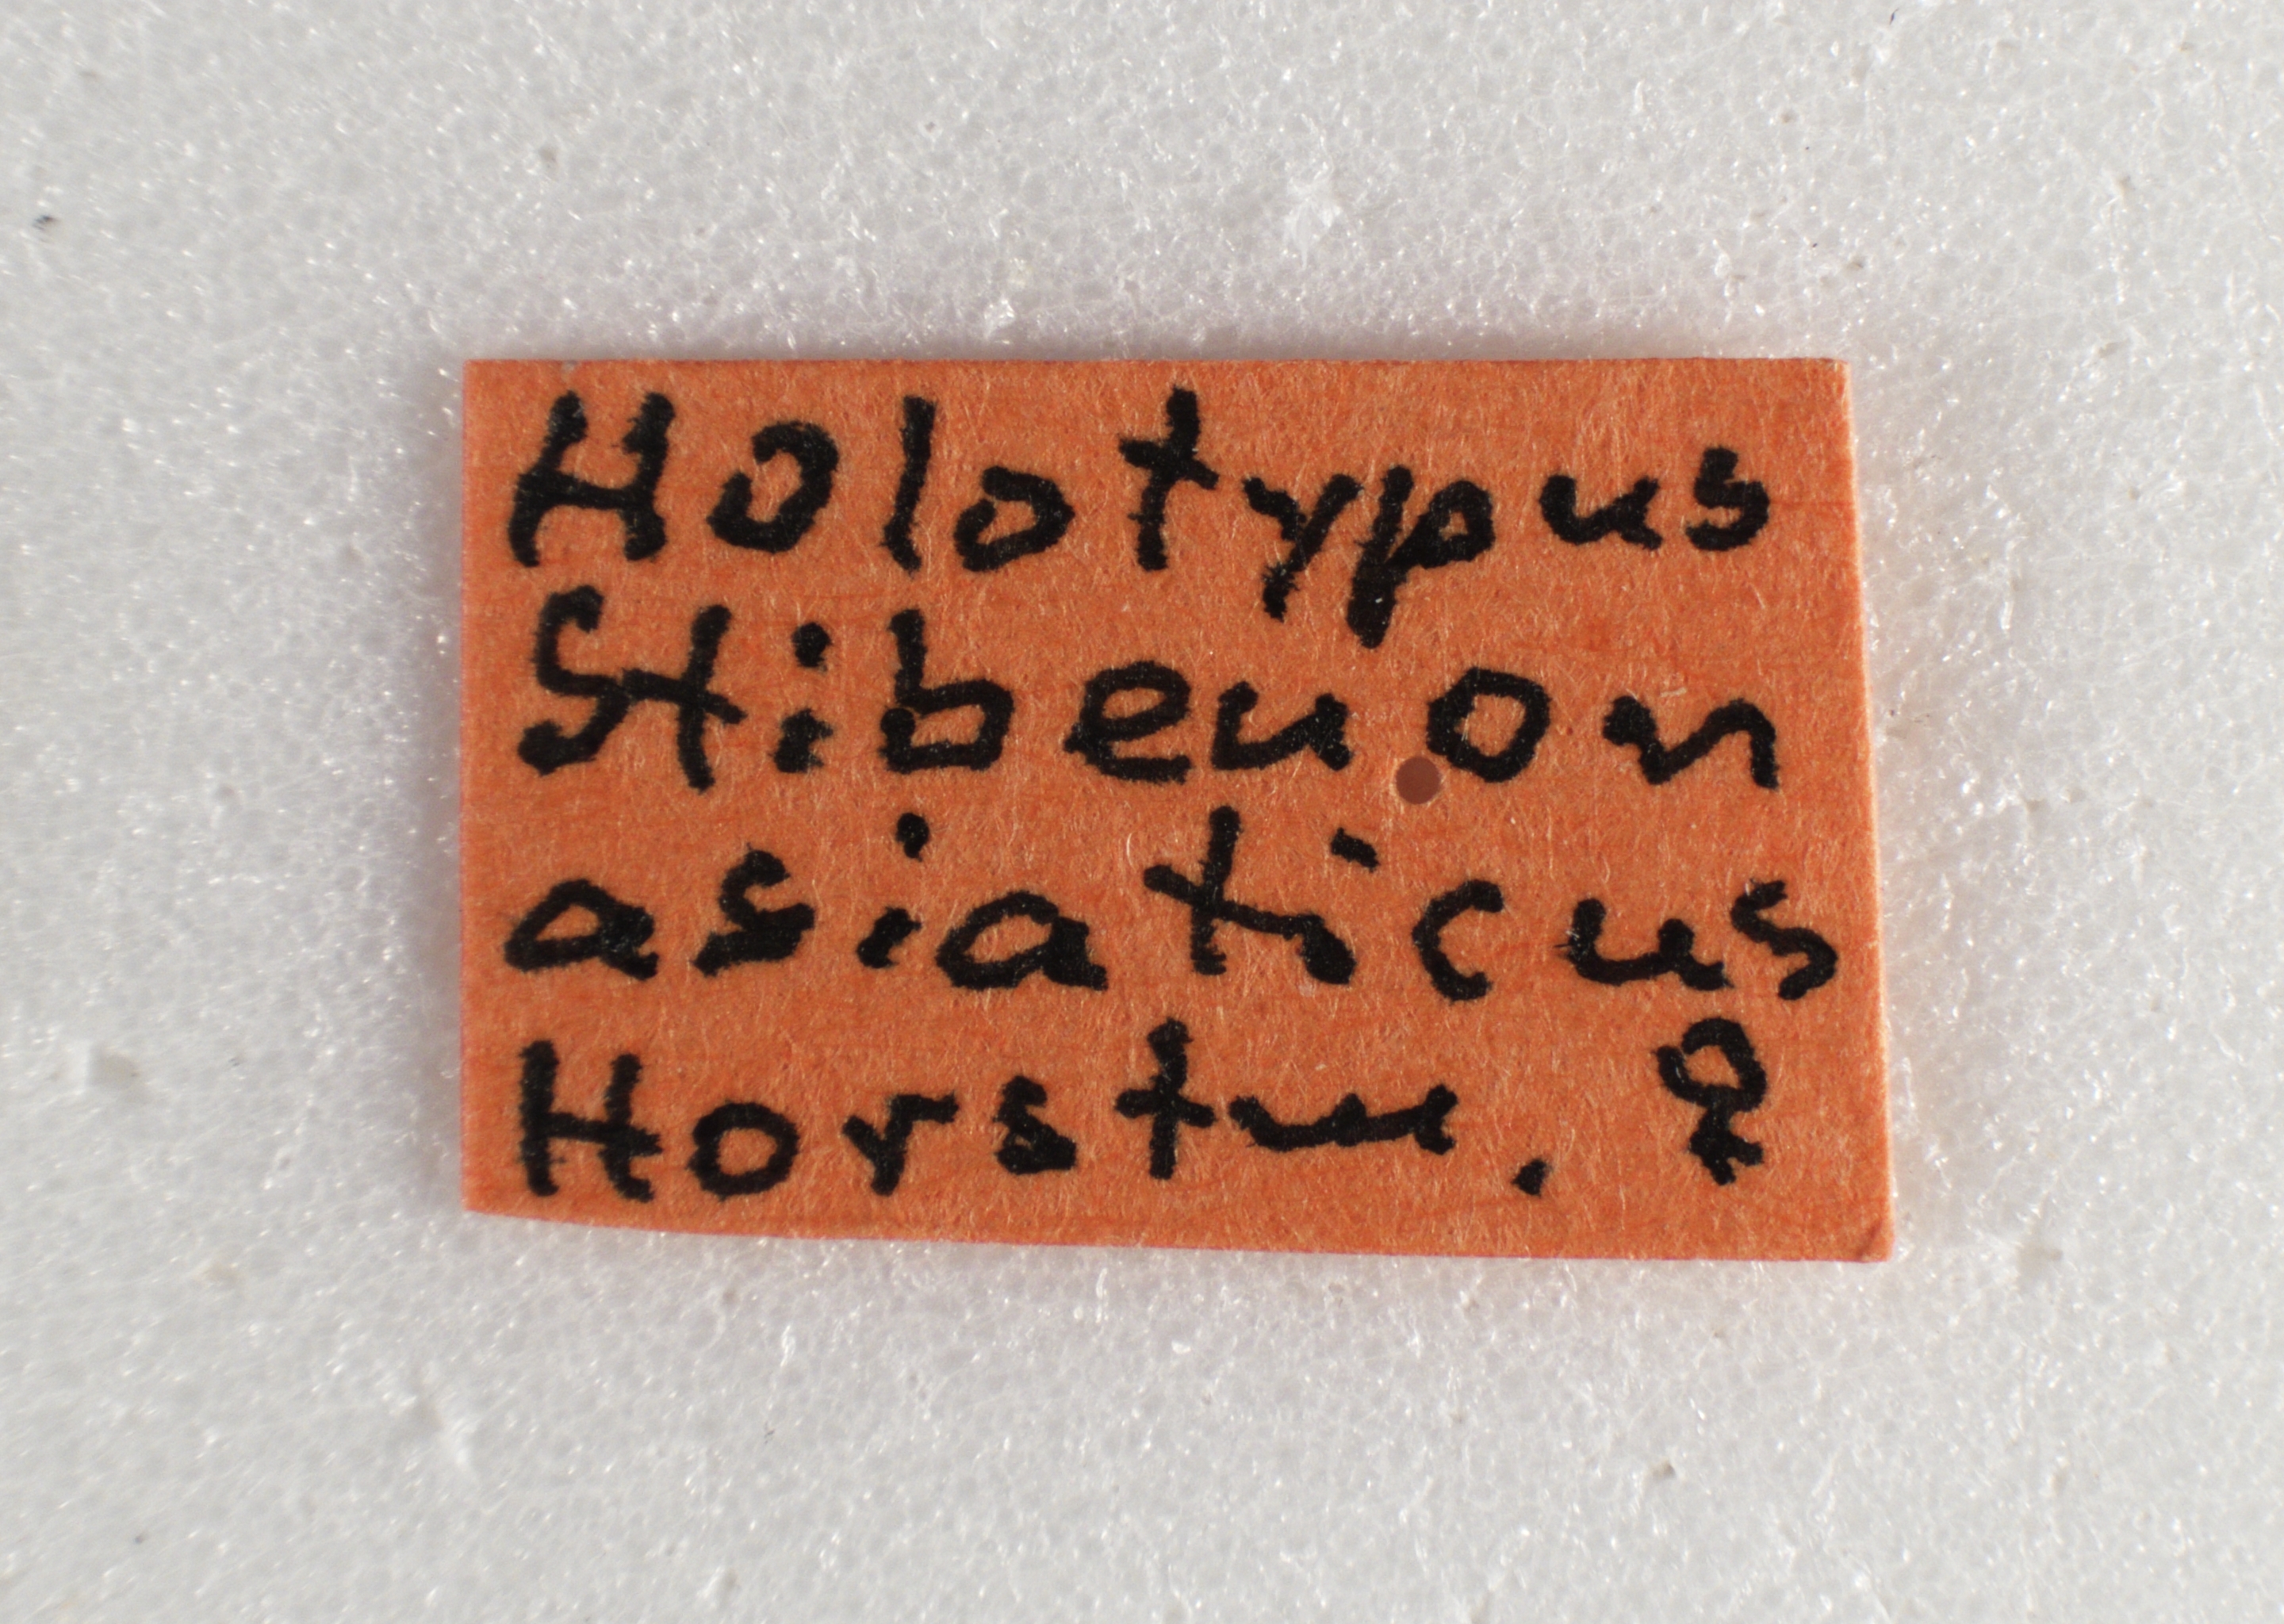 Holotypus
Stibeuon
asiaticus
Horstm. ♀